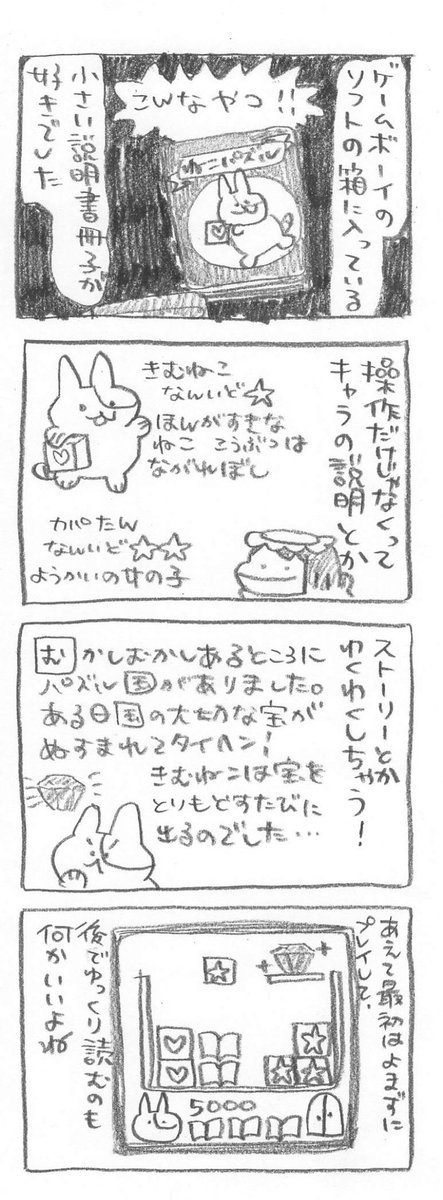 ゲームボーイの
ソフトの箱に入っている
こんなやつ!!
ねこパズル
小さい説明書冊子が
好きでした
操作だけじゃなくって
キャラの説明とか
きむねこ
なんいど☆
ほんがすきな
ねこ こうぶつは
ながれぼし
カパたん
なんいど☆☆
ようかいの女の子
ストーリーとか
わくわくしちゃう!
むかしむかしあるところに
パズル国がありました。
ある日国の大切な宝が
ぬすまれてタイヘン!
きむねこは宝を
とりもどすたびに
出るのでした…
あえて最初はよまずに
プレイして、
5000
後でゆっくり読むのも
何かいいよね